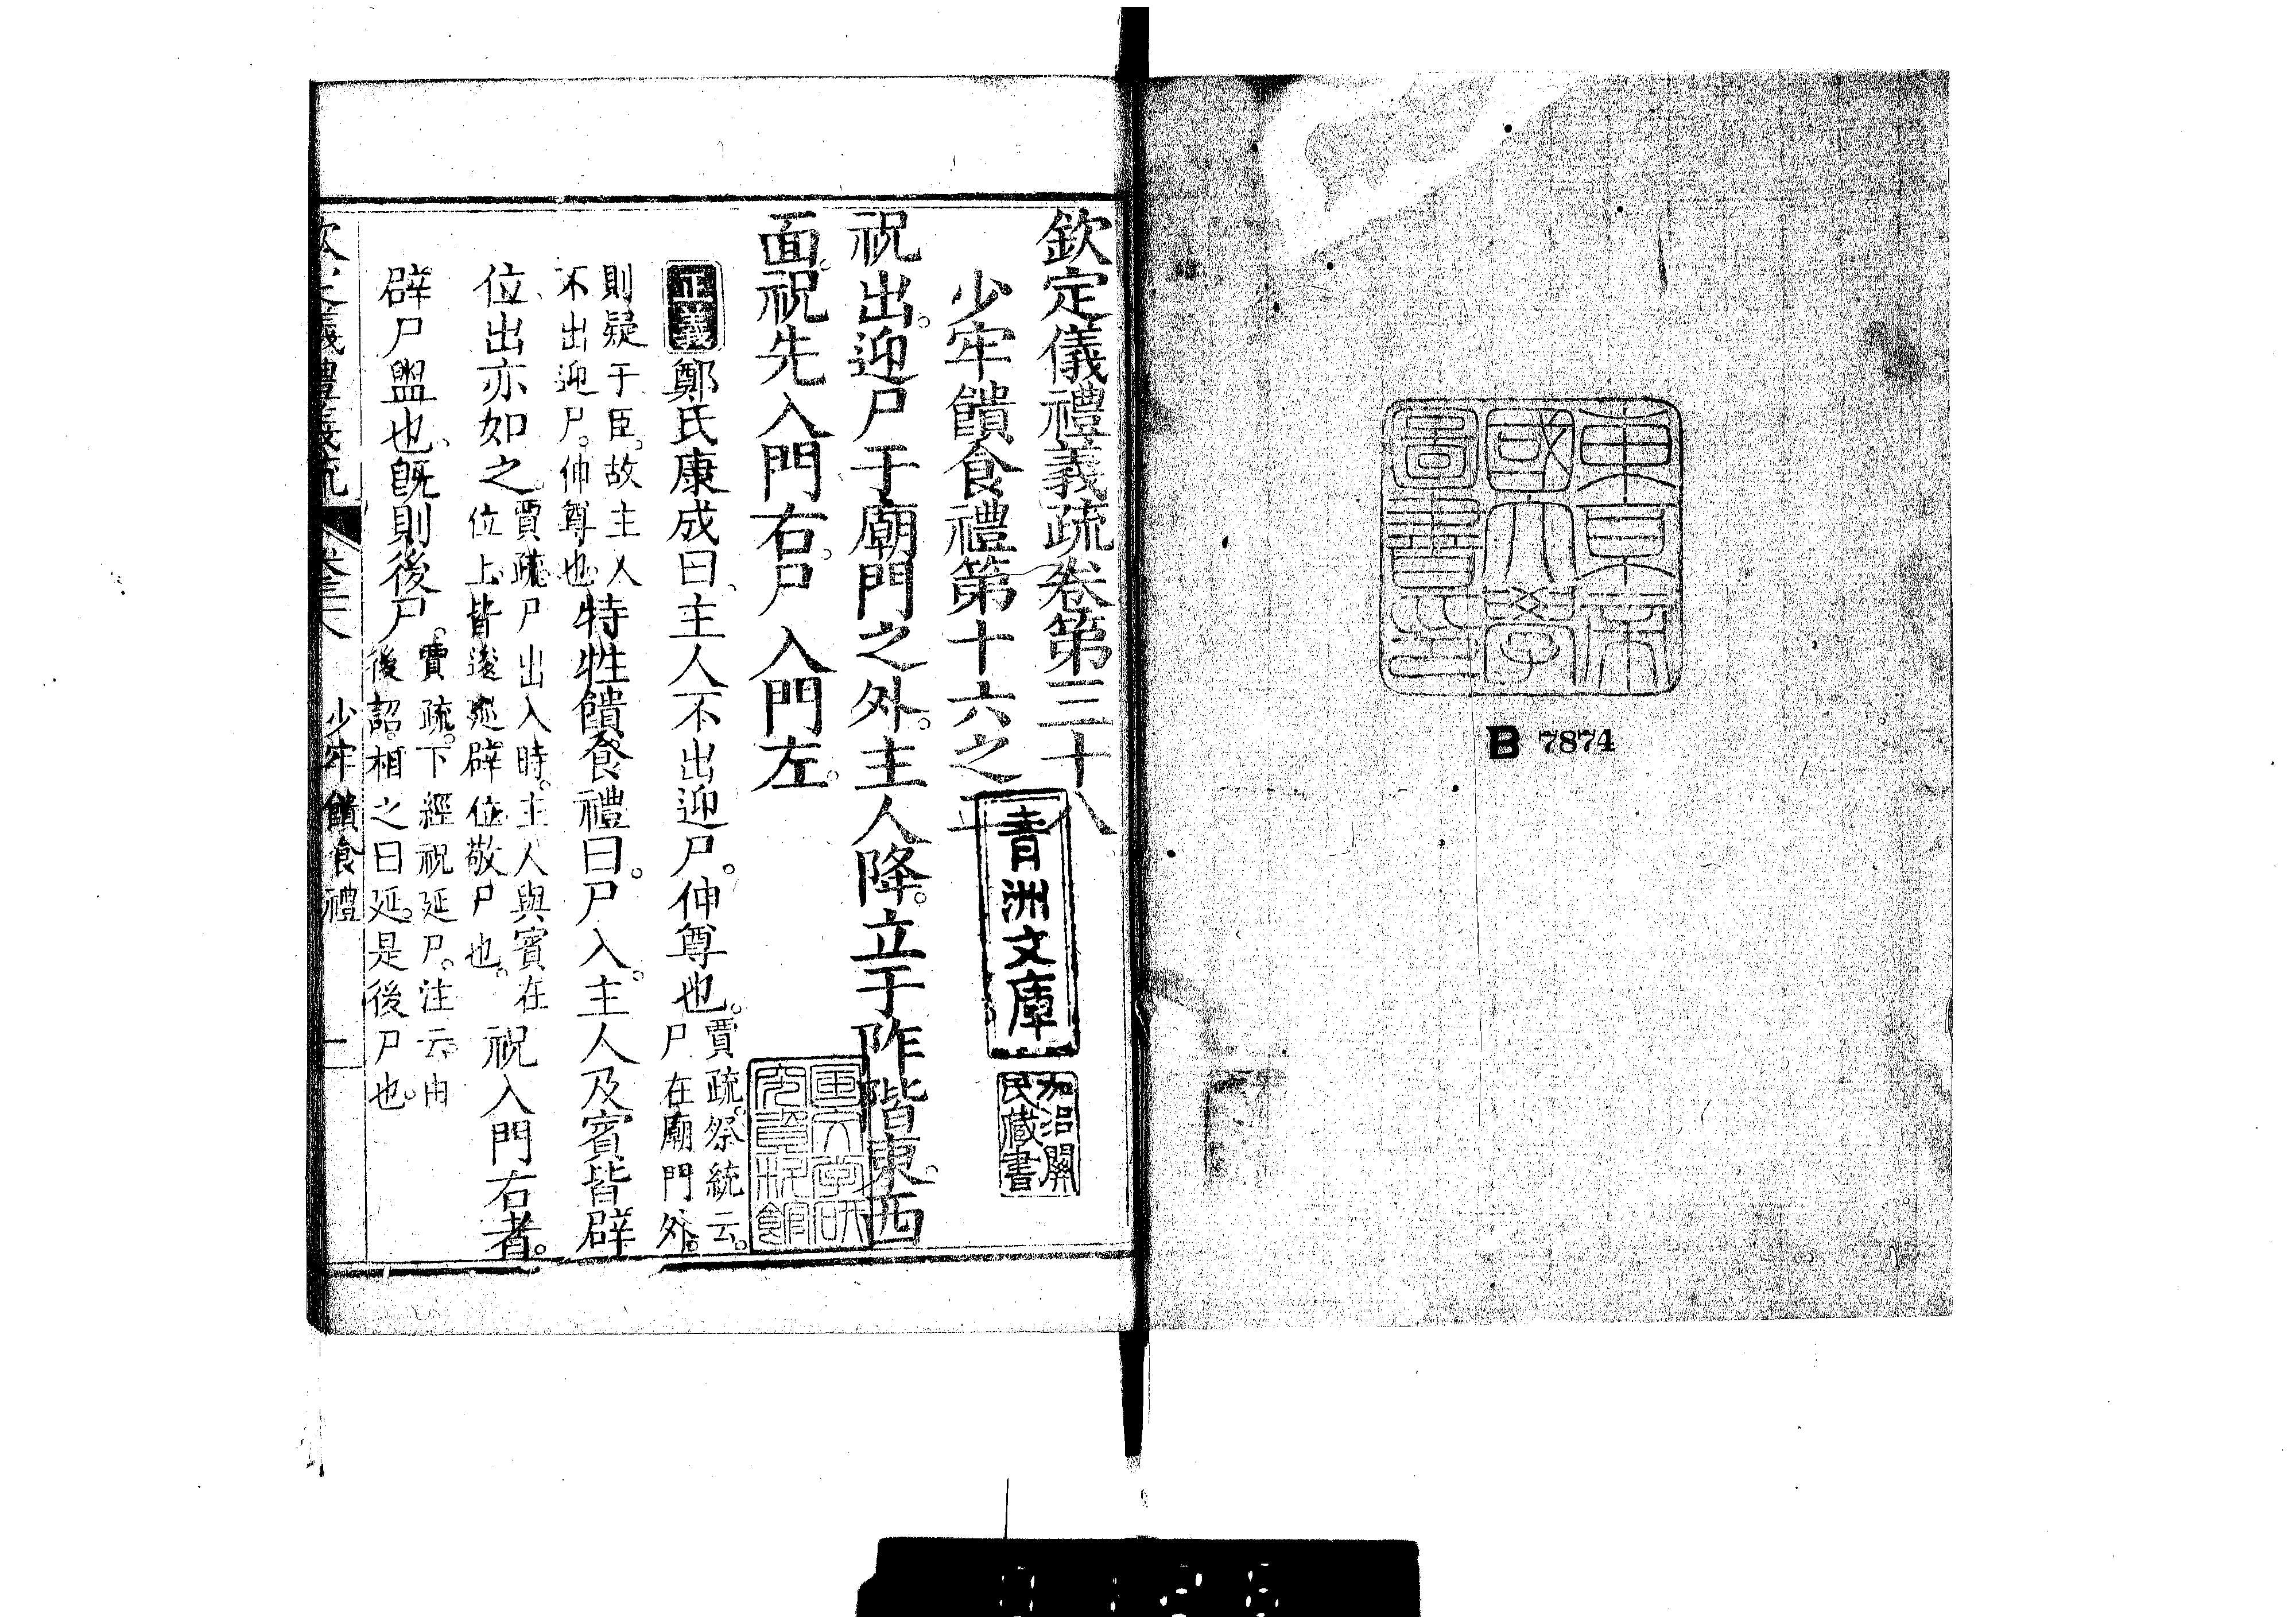 東京帝
國大學
圖書印
B 7874
欽定儀禮義疏卷第三十八
少牢饋食禮第十六之
青洲文庫
加沼關
民藏書
祝出。迎尸于廟門之外。主人降。立于阼階東。西
面。祝先入門右。尸入門左。
正義鄭氏康成曰、主人不出迎尸。伸尊也。賈疏。祭統云。尸在廟門外。
則疑于臣。故主人不出迎尸。伸尊也。特牲饋食禮曰。尸入。主人及賓皆辟
位、出亦如之。賈疏。尸出入時。主人與賓在位上。皆逡巡辟位敬尸也。祝入門右者。
辟尸盥也、旣則後尸。賈疏。下經祝延尸。注云。由後詔。相之曰延。是後尸也。
少牢饋食禮